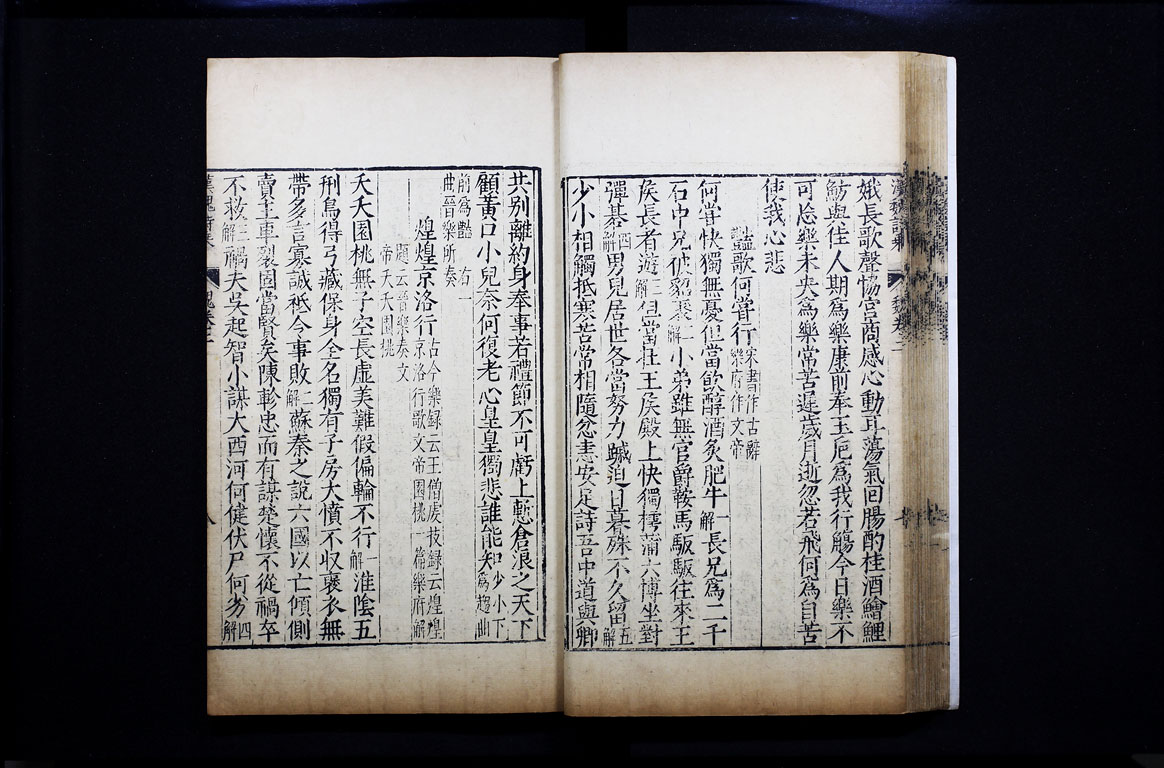 娥長歌聲恊宮商感心動耳蕩氣回腸酌桂酒鱠鯉
魴與佳人期爲樂康前奉玉巵爲我行觴今日樂不
可忘樂未央爲樂常苦遲歲月逝忽若飛何爲自苦
使我心悲
豔歌何嘗行 宋書作古辭 樂府作文帝
何嘗快獨無憂但當飲醇酒炙肥牛 一解 長兄爲二千
石中兄被貂裘 二解 小弟雖無官爵鞍馬馺馺往來王
矦長者遊 三解 但當在王矦殿上快獨摴蒲六博坐對
彈碁 四解 男兒居世各當努力蹴迫日暮殊不久留 五解
少小相觸抵寒苦常相隨忿恚安足諍吾中道與卿
共别離約身奉事君禮節不可虧上慙倉浪之天下
顧黃口小兒奈何復老心皇皇獨悲誰能知 少小下爲趨曲
前爲豔 右一曲晉樂所奏
煌煌京洛行 古今樂録云王僧虔技録云煌煌京洛行歌文帝園桃一篇樂府解
題云晉樂奏文帝夭夭園桃
夭夭園桃無子空長虛美難假偏輪不行 一解 淮陰五
刑鳥得弓藏保身全名獨有子房大憤不收褒衣無
帶多言寡誠秪令事敗 二解 蘇秦之說六國以亡傾側
賣主車裂固當賢矣陳軫忠而有謀楚懷不從禍卒
不救 三解 禍夫吳起智小謀大西河何健伏尸何劣 四解
漢魏詩紀
魏卷二
八